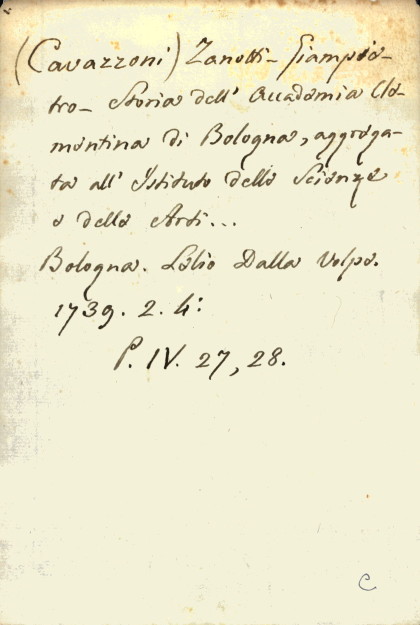 (Cavazzoni) Zanotti - Giampie-
tro - Storia dell' Accademia Cle-
mentina di Bologna, aggrega-
ta all' Istituto delle Scienze
e delle Arti...
Bologna. Lelio Dalla Volpe.
1739. 2. 4:
P. IV. 27, 28.
C